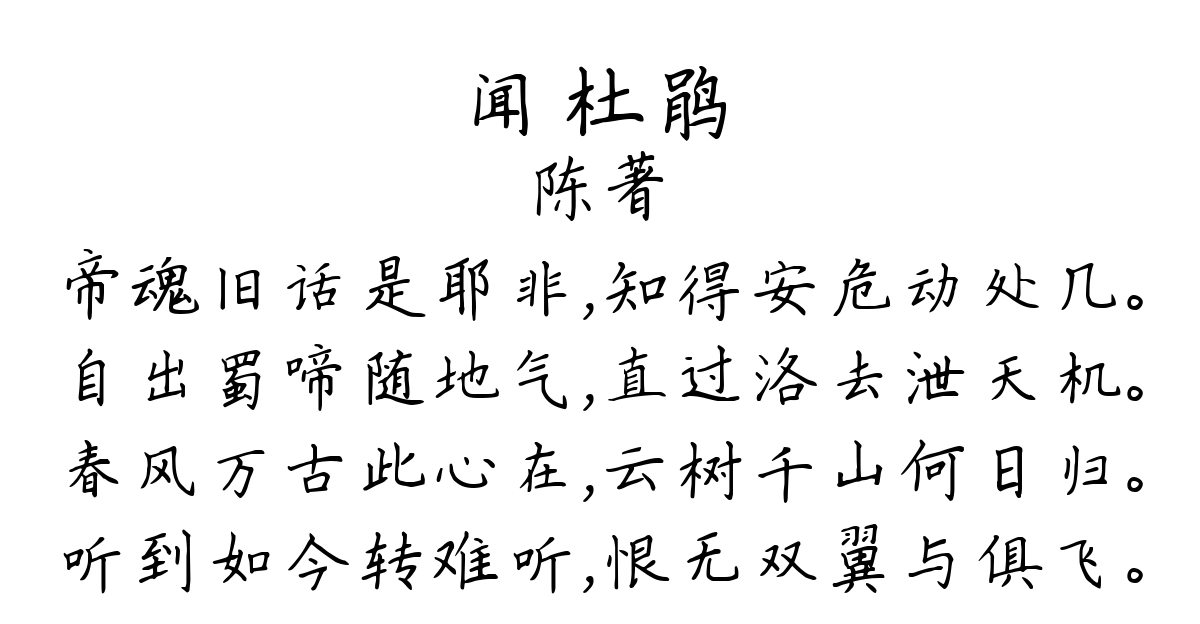 闻杜鹃
陈著
帝魂旧话是耶非,知得安危动处几。
自出蜀啼随地气,直过洛去泄天机。
春风万古此心在,云树千山何日归。
听到如今转难听,恨无双翼与俱飞。